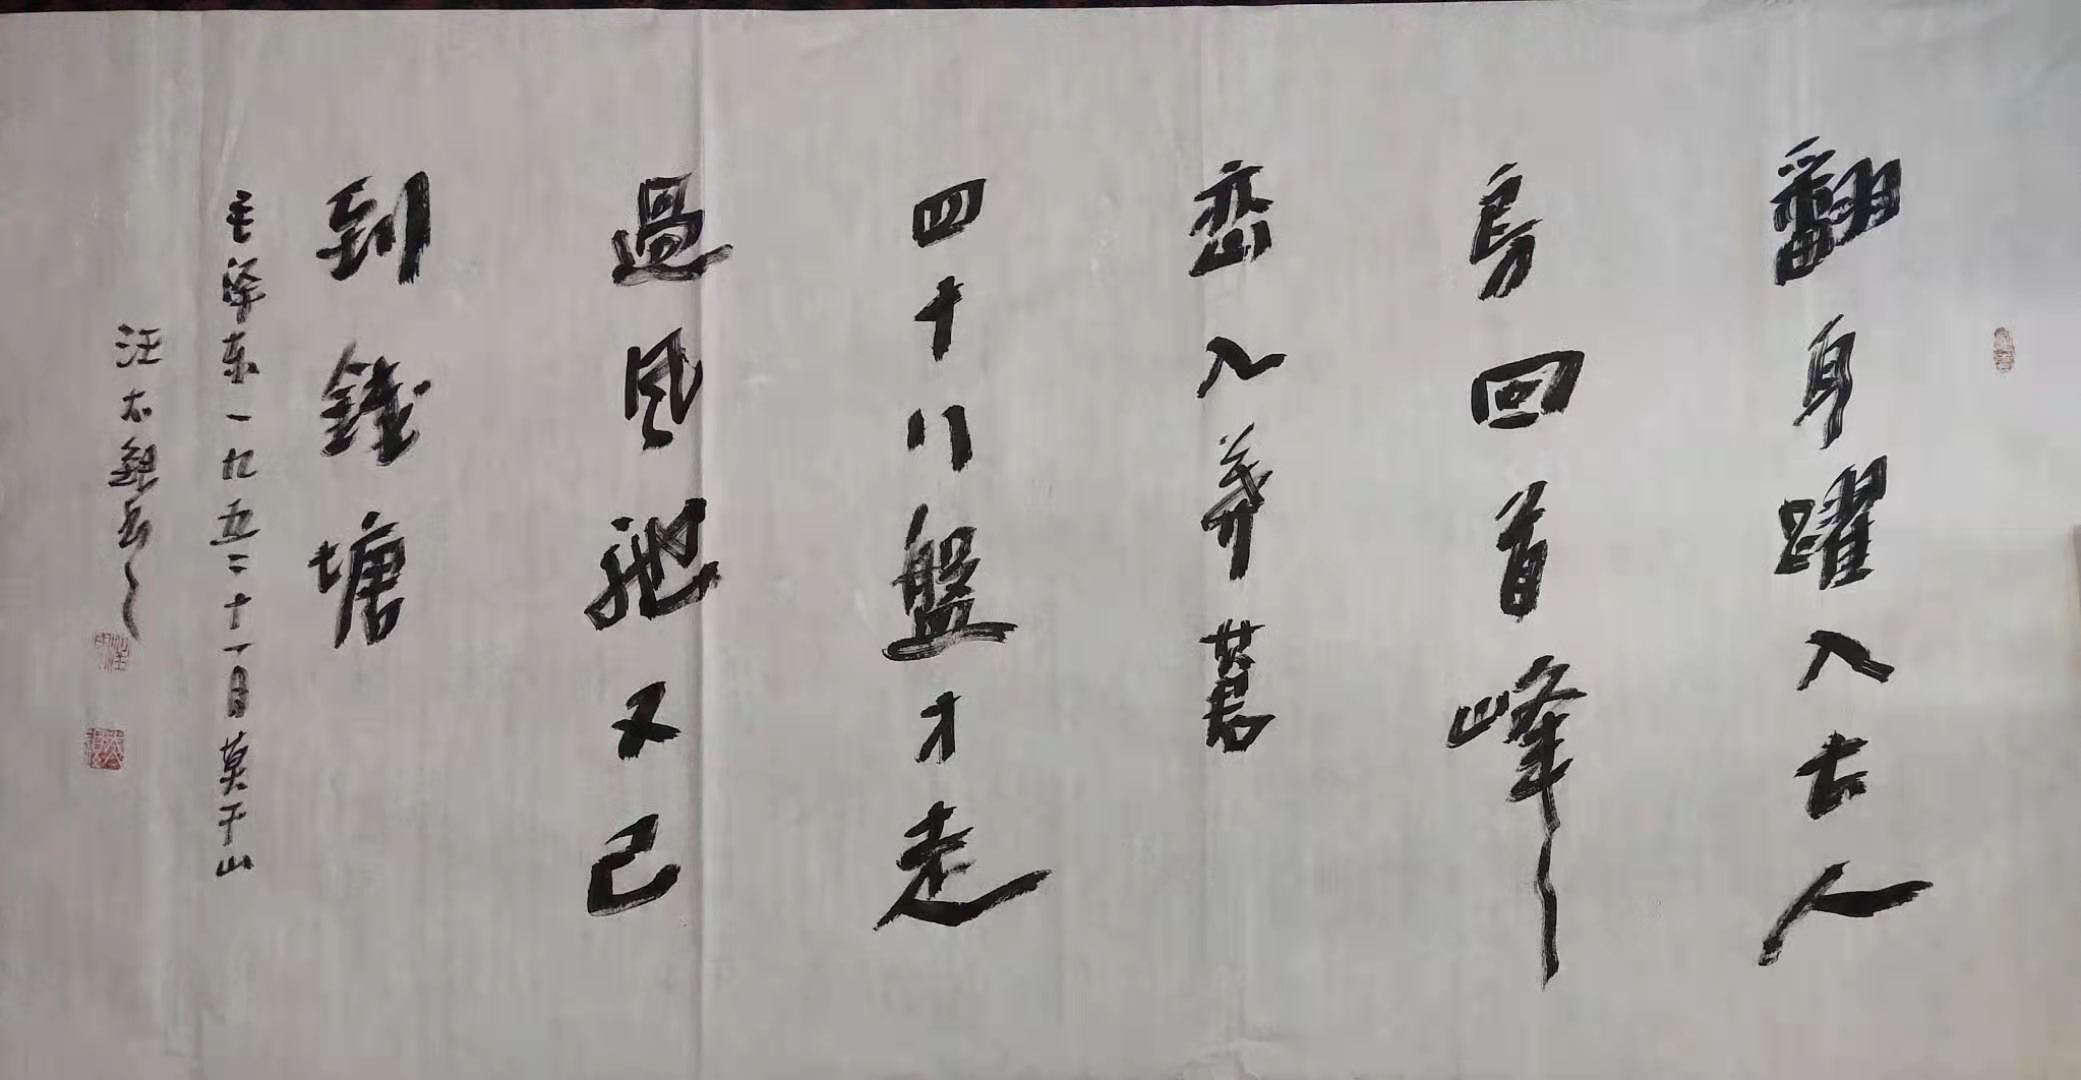 翻身躍入七人
房回首峰
峦入莽蒼
四十八盤才走
過風馳又已
到錢塘
毛泽东一九五二十一月莫干山
汪太